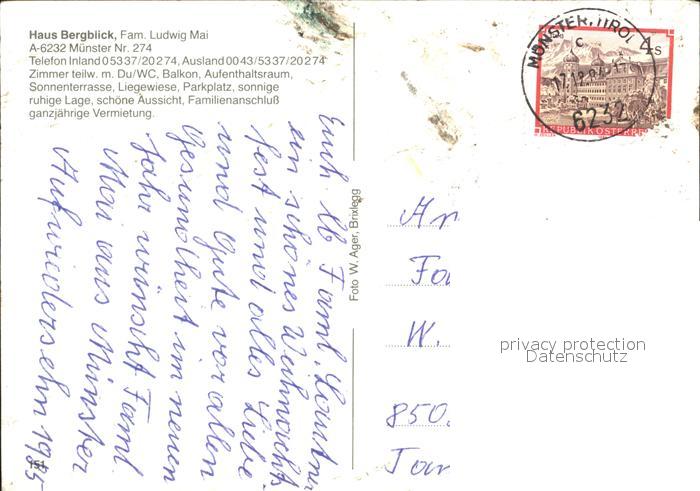 Haus Bergblick, Fam. Ludwig Mai
A-6232 Münster Nr. 274
Telefon Inland 05337/20274, Ausland 0043/5337/20274
Zimmer teilw. m. Du/WC, Balkon, Aufenthaltsraum,
Sonnenterrasse, Liegewiese, Parkplatz, sonnige
ruhige Lage, schöne Aussicht, Familienanschluß
ganzjährige Vermietung.
Euch lb Faml.
ein schönes Weihnachts
fest und alles Liebe
und Gute vor allen
Gesundheit im neuen
Jahr wünscht Faml.
Mai aus Münster
Aufwiedersehn 1985
Foto W. Ager, Brixlegg
151
MÜNSTER, TIROL
c
6232
4 S
REPUBLIK ÖSTERRE
An
Fa
W.
850
privacy protection
Datenschutz